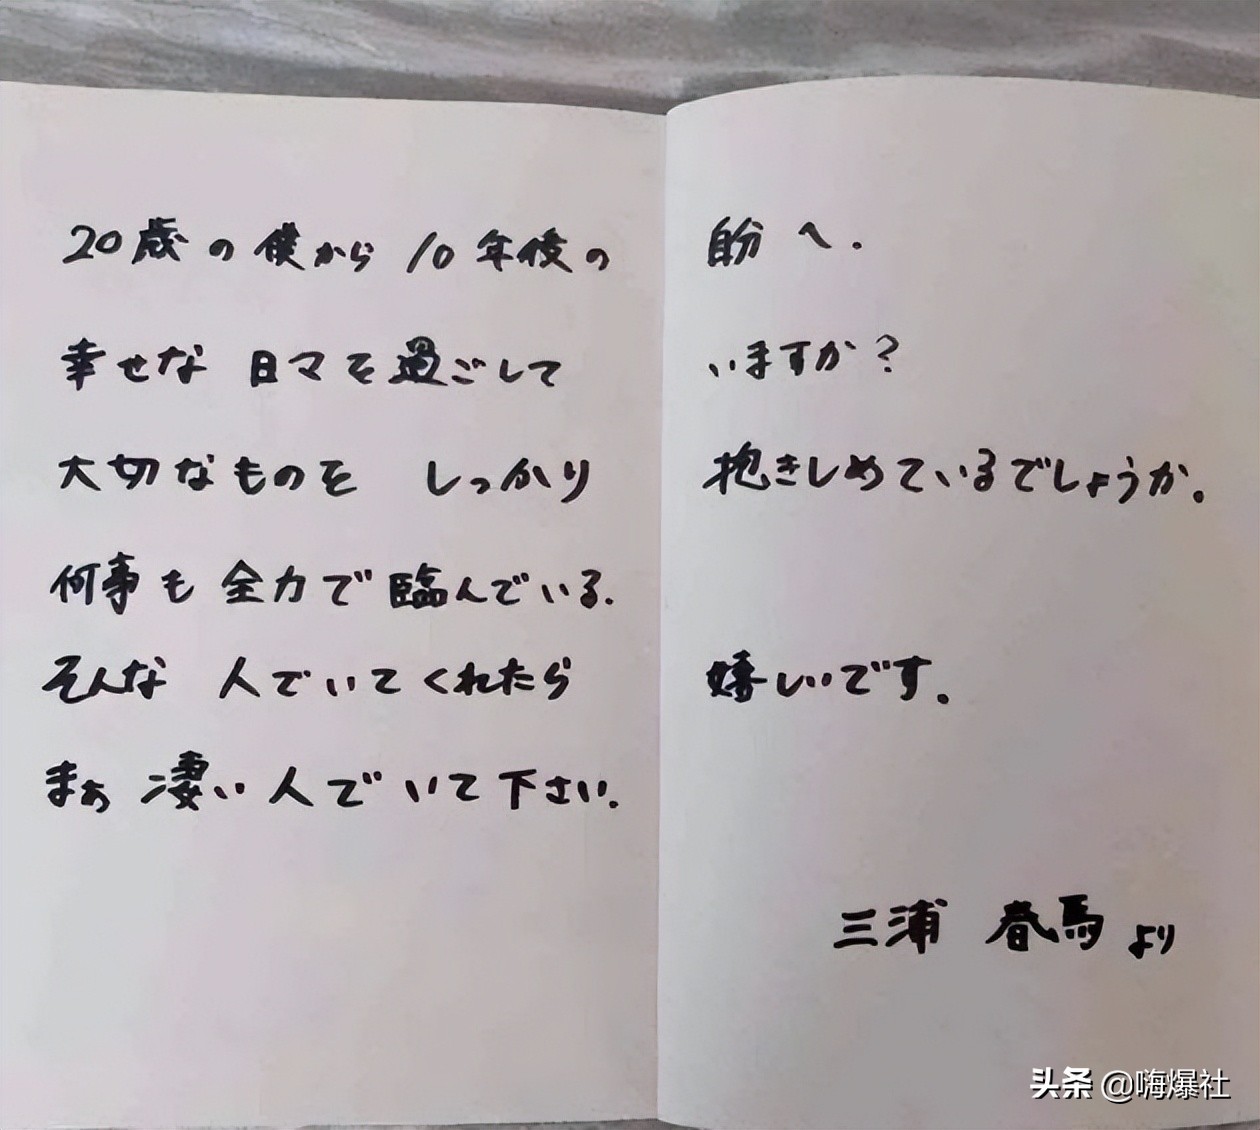 20歳の僕から 10年後の 自分へ.
幸せな 日々を過ごして いますか?
大切なものを しっかり 抱きしめているでしょうか。
何事も 全力で 臨んでいる.
そんな 人でいてくれたら 嬉しいです。
まぁ 凄い人で いて下さい.
三浦 春馬 より
头条 @嗨爆社